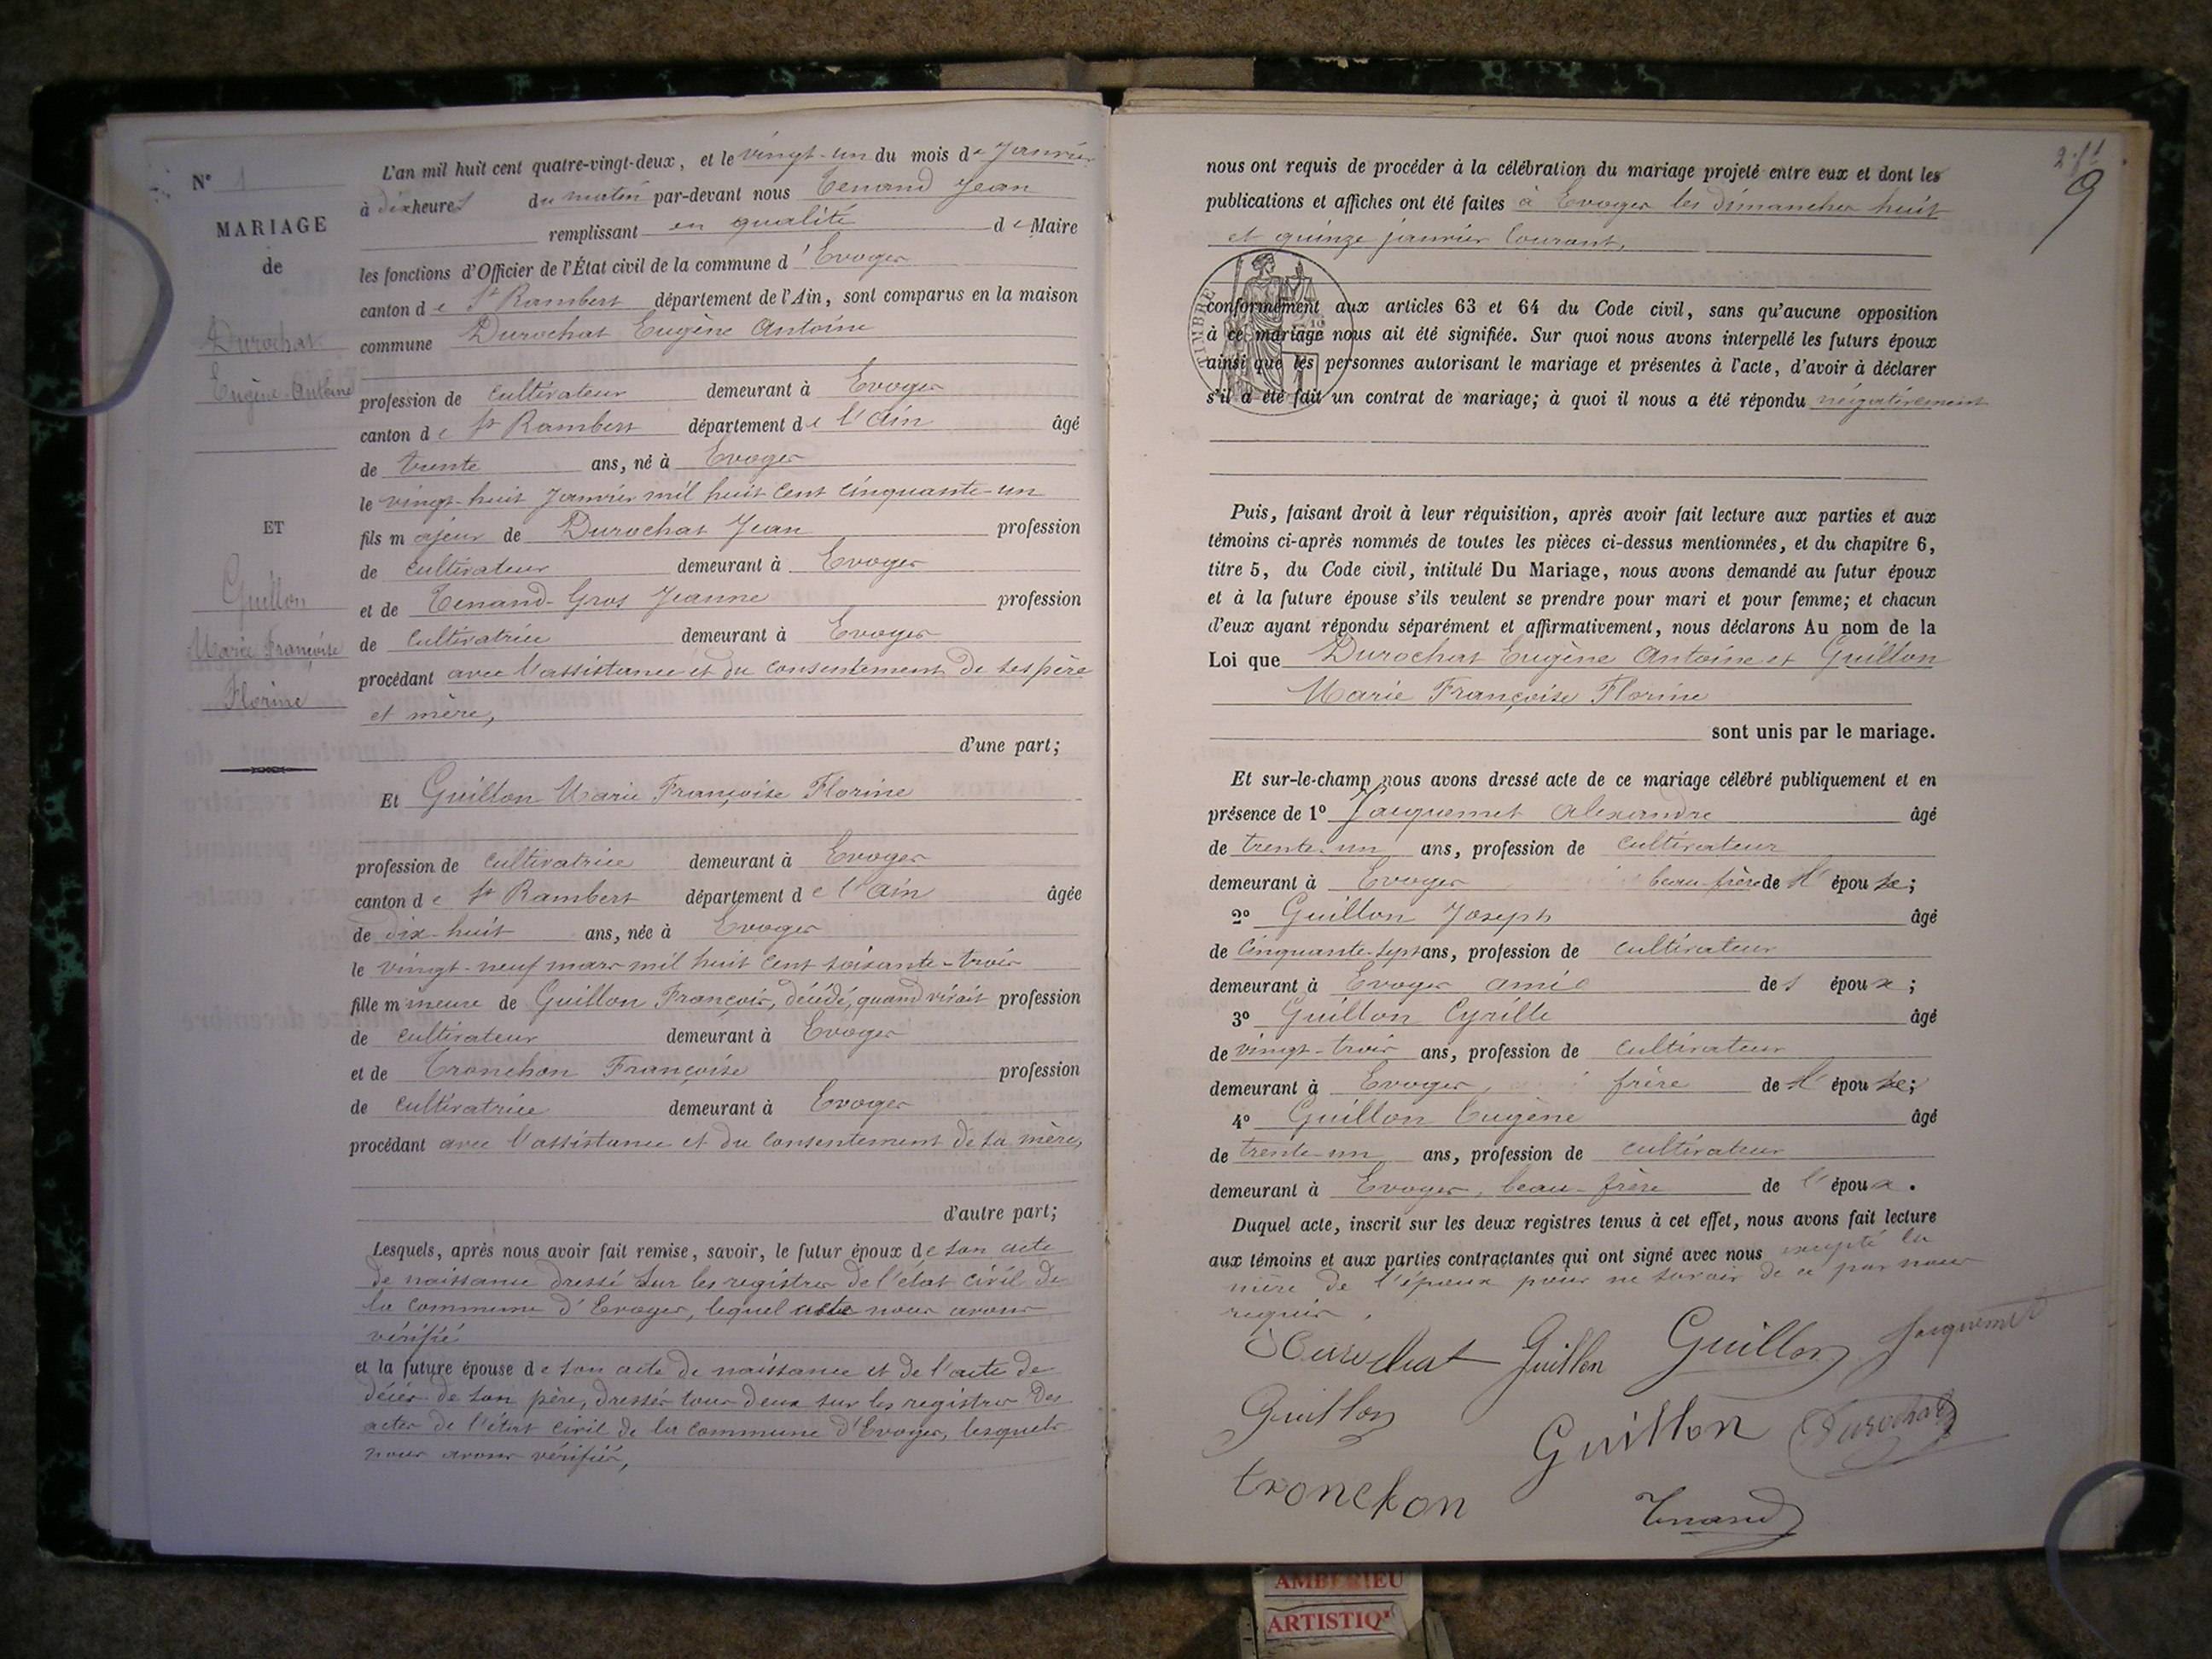 N° 1
MARIAGE
de
Durochat
Eugène-Antoine
ET
Guillon
Marie Françoise
Florine
L'an mil huit cent quatre-vingt-deux, et le vingt-un du mois de Janvier
à dix heures du matin par-devant nous Tenand Jean
remplissant en qualité de Maire
les fonctions d'Officier de l'État civil de la commune d'Evoges
canton de St Rambert département de l'Ain, sont comparus en la maison
commune Durochat Eugène Antoine
profession de cultivateur demeurant à Evoges
canton de St Rambert département de l'Ain âgé
de trente ans, né à Evoges
le vingt-huit Janvier mil huit cent cinquante-un
fils majeur de Durochat Jean profession
de cultivateur demeurant à Evoges
et de Tenand-Gros Jeanne profession
de cultivatrice demeurant à Evoges
procédant avec l'assistance et du consentement de ses père
et mère,
d'une part;
Et Guillon Marie Françoise Florine
profession de cultivatrice demeurant à Evoges
canton de St Rambert département de l'Ain âgée
de dix-huit ans, née à Evoges
le vingt-neuf mars mil huit cent soixante-trois
fille mineure de Guillon François, décédé, quand vivait profession
de cultivateur demeurant à Evoges
et de Tronchon Françoise profession
de cultivatrice demeurant à Evoges
procédant avec l'assistance et du consentement de sa mère,
d'autre part;
Lesquels, après nous avoir fait remise, savoir, le futur époux de son acte
de naissance dressé sur les registres de l'état civil de
la commune d'Evoges, lequel acte nous avons
vérifié
et la future épouse de son acte de naissance et de l'acte de
décès de son père, dressés tous deux sur les registres des
actes de l'état civil de la commune d'Evoges, lesquels
nous avons vérifiés,
9
nous ont requis de procéder à la célébration du mariage projeté entre eux et dont les
publications et affiches ont été faites à Evoges les dimanches huit
et quinze janvier courant,
TIMBRE
conformément aux articles 63 et 64 du Code civil, sans qu'aucune opposition
à ce mariage nous ait été signifiée. Sur quoi nous avons interpellé les futurs époux
ainsi que les personnes autorisant le mariage et présentes à l'acte, d'avoir à déclarer
s'il a été fait un contrat de mariage; à quoi il nous a été répondu négativement
Puis, faisant droit à leur réquisition, après avoir fait lecture aux parties et aux
témoins ci-après nommés de toutes les pièces ci-dessus mentionnées, et du chapitre 6,
titre 5, du Code civil, intitulé Du Mariage, nous avons demandé au futur époux
et à la future épouse s'ils veulent se prendre pour mari et pour femme; et chacun
d'eux ayant répondu séparément et affirmativement, nous déclarons Au nom de la
Loi que Durochat Eugène Antoine et Guillon
Marie Françoise Florine
sont unis par le mariage.
Et sur-le-champ nous avons dressé acte de ce mariage célébré publiquement et en
présence de 1° Jacquemet Alexandre âgé
de trente-un ans, profession de cultivateur
demeurant à Evoges beau-frère de l'épouse;
2° Guillon Joseph âgé
de cinquante-sept ans, profession de cultivateur
demeurant à Evoges ami des époux;
3° Guillon Cyrille âgé
de vingt-trois ans, profession de cultivateur
demeurant à Evoges, frère de l'épouse;
4° Guillon Eugène âgé
de trente-un ans, profession de cultivateur
demeurant à Evoges, beau-frère de l'époux.
Duquel acte, inscrit sur les deux registres tenus à cet effet, nous avons fait lecture
aux témoins et aux parties contractantes qui ont signé avec nous excepté la
mère de l'époux pour ne savoir de ce par nous
requis.
Durochat Guillon Guillon Jacquemet
Guillon Guillon Durochat
tronchon Tenand
AMBERIEU
ARTISTIQ